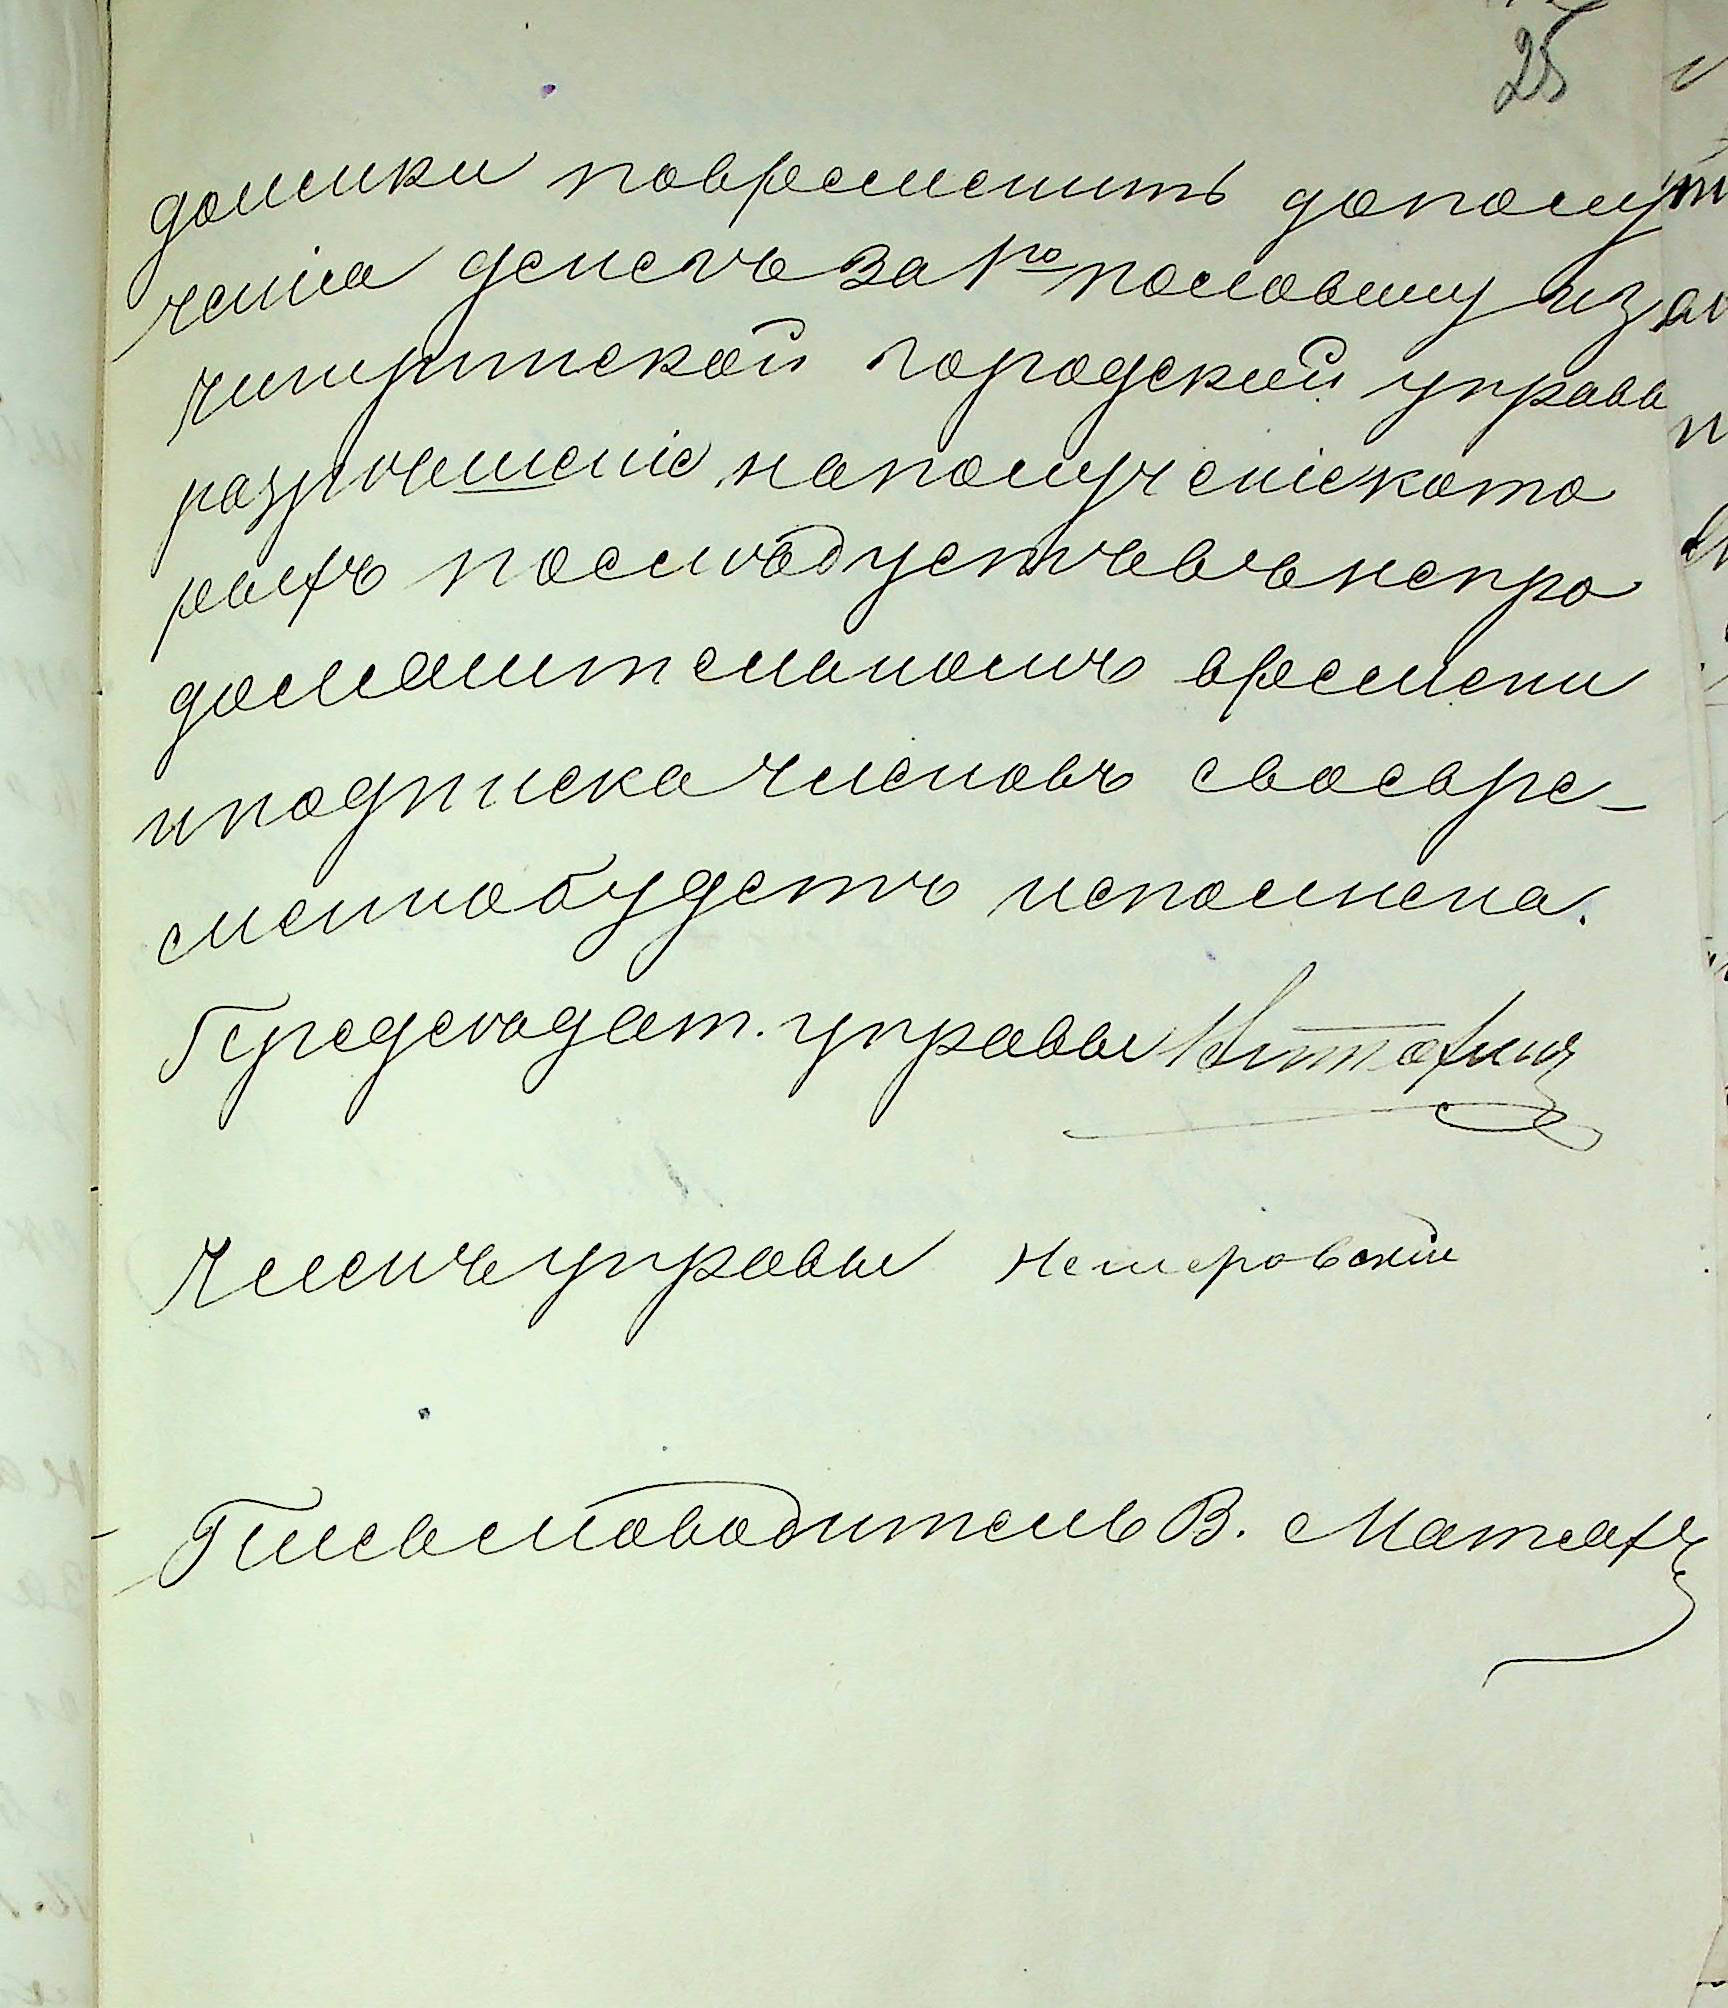 25
доимки повременить до полу
ченія денегъ за 1ю половину из
Чигунской городской управы
разрѣшеніе на полученіе кото
рыхъ послѣдуетъ въ непро
должительномъ времени
и подписка членовъ своевре-
менно будетъ исполнена.
Предсѣдат. управы
Членъ управы
Письмоводитель В.